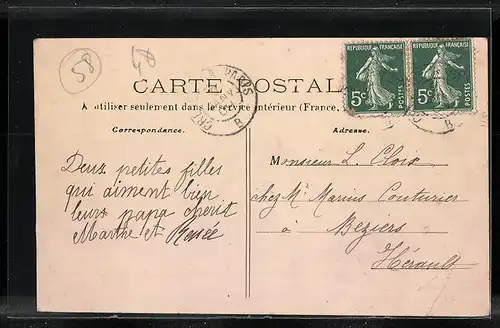 58
48
CARTE POSTALE
A utiliser seulement dans le service intérieur (France,
Correspondance.
Adresse.
RÉPUBLIQUE FRANÇAISE
5c
POSTES
RÉPUBLIQUE FRANÇAISE
5c
POSTES
PARIS
Deux petites filles
qui aiment bien
leurs papa cherit
Marthe et Renée
Monsieur L. Clois
chez Mr Marius Couturier
à
Beziers
Hérault